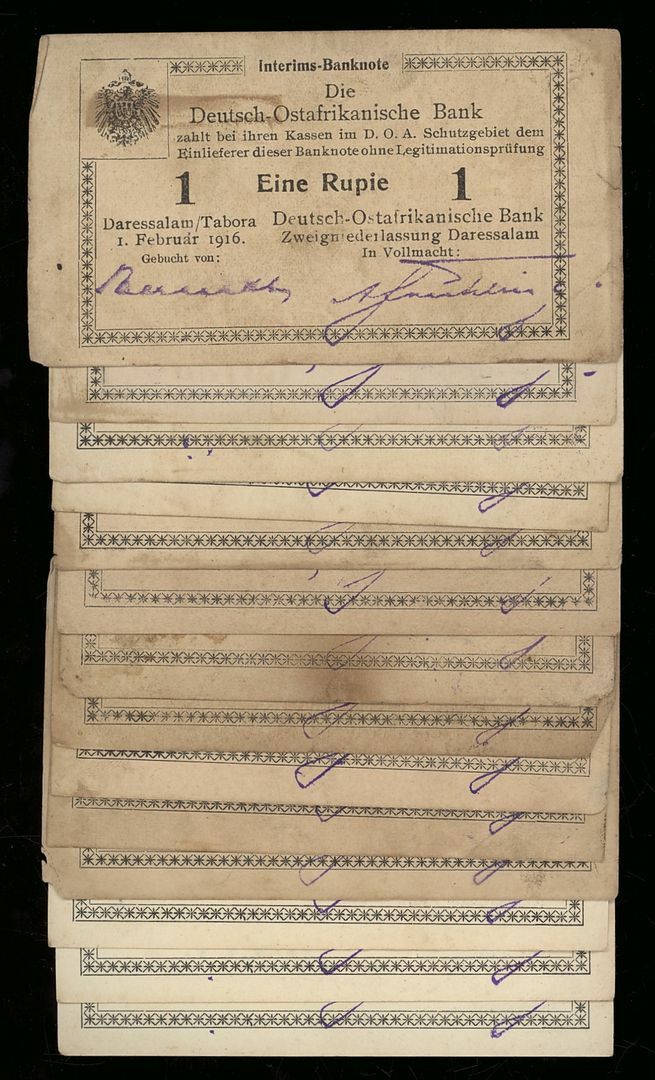 Interims-Banknote
Die
Deutsch-Ostafrikanische Bank
zahlt bei ihren Kassen im D. O. A. Schutzgebiet dem
Einlieferer dieser Banknote ohne Legitimationsprüfung
1 Eine Rupie 1
Daressalam/Tabora Deutsch-Ostafrikanische Bank
1. Februar 1916. Zweigniederlassung Daressalam
Gebucht von: In Vollmacht: